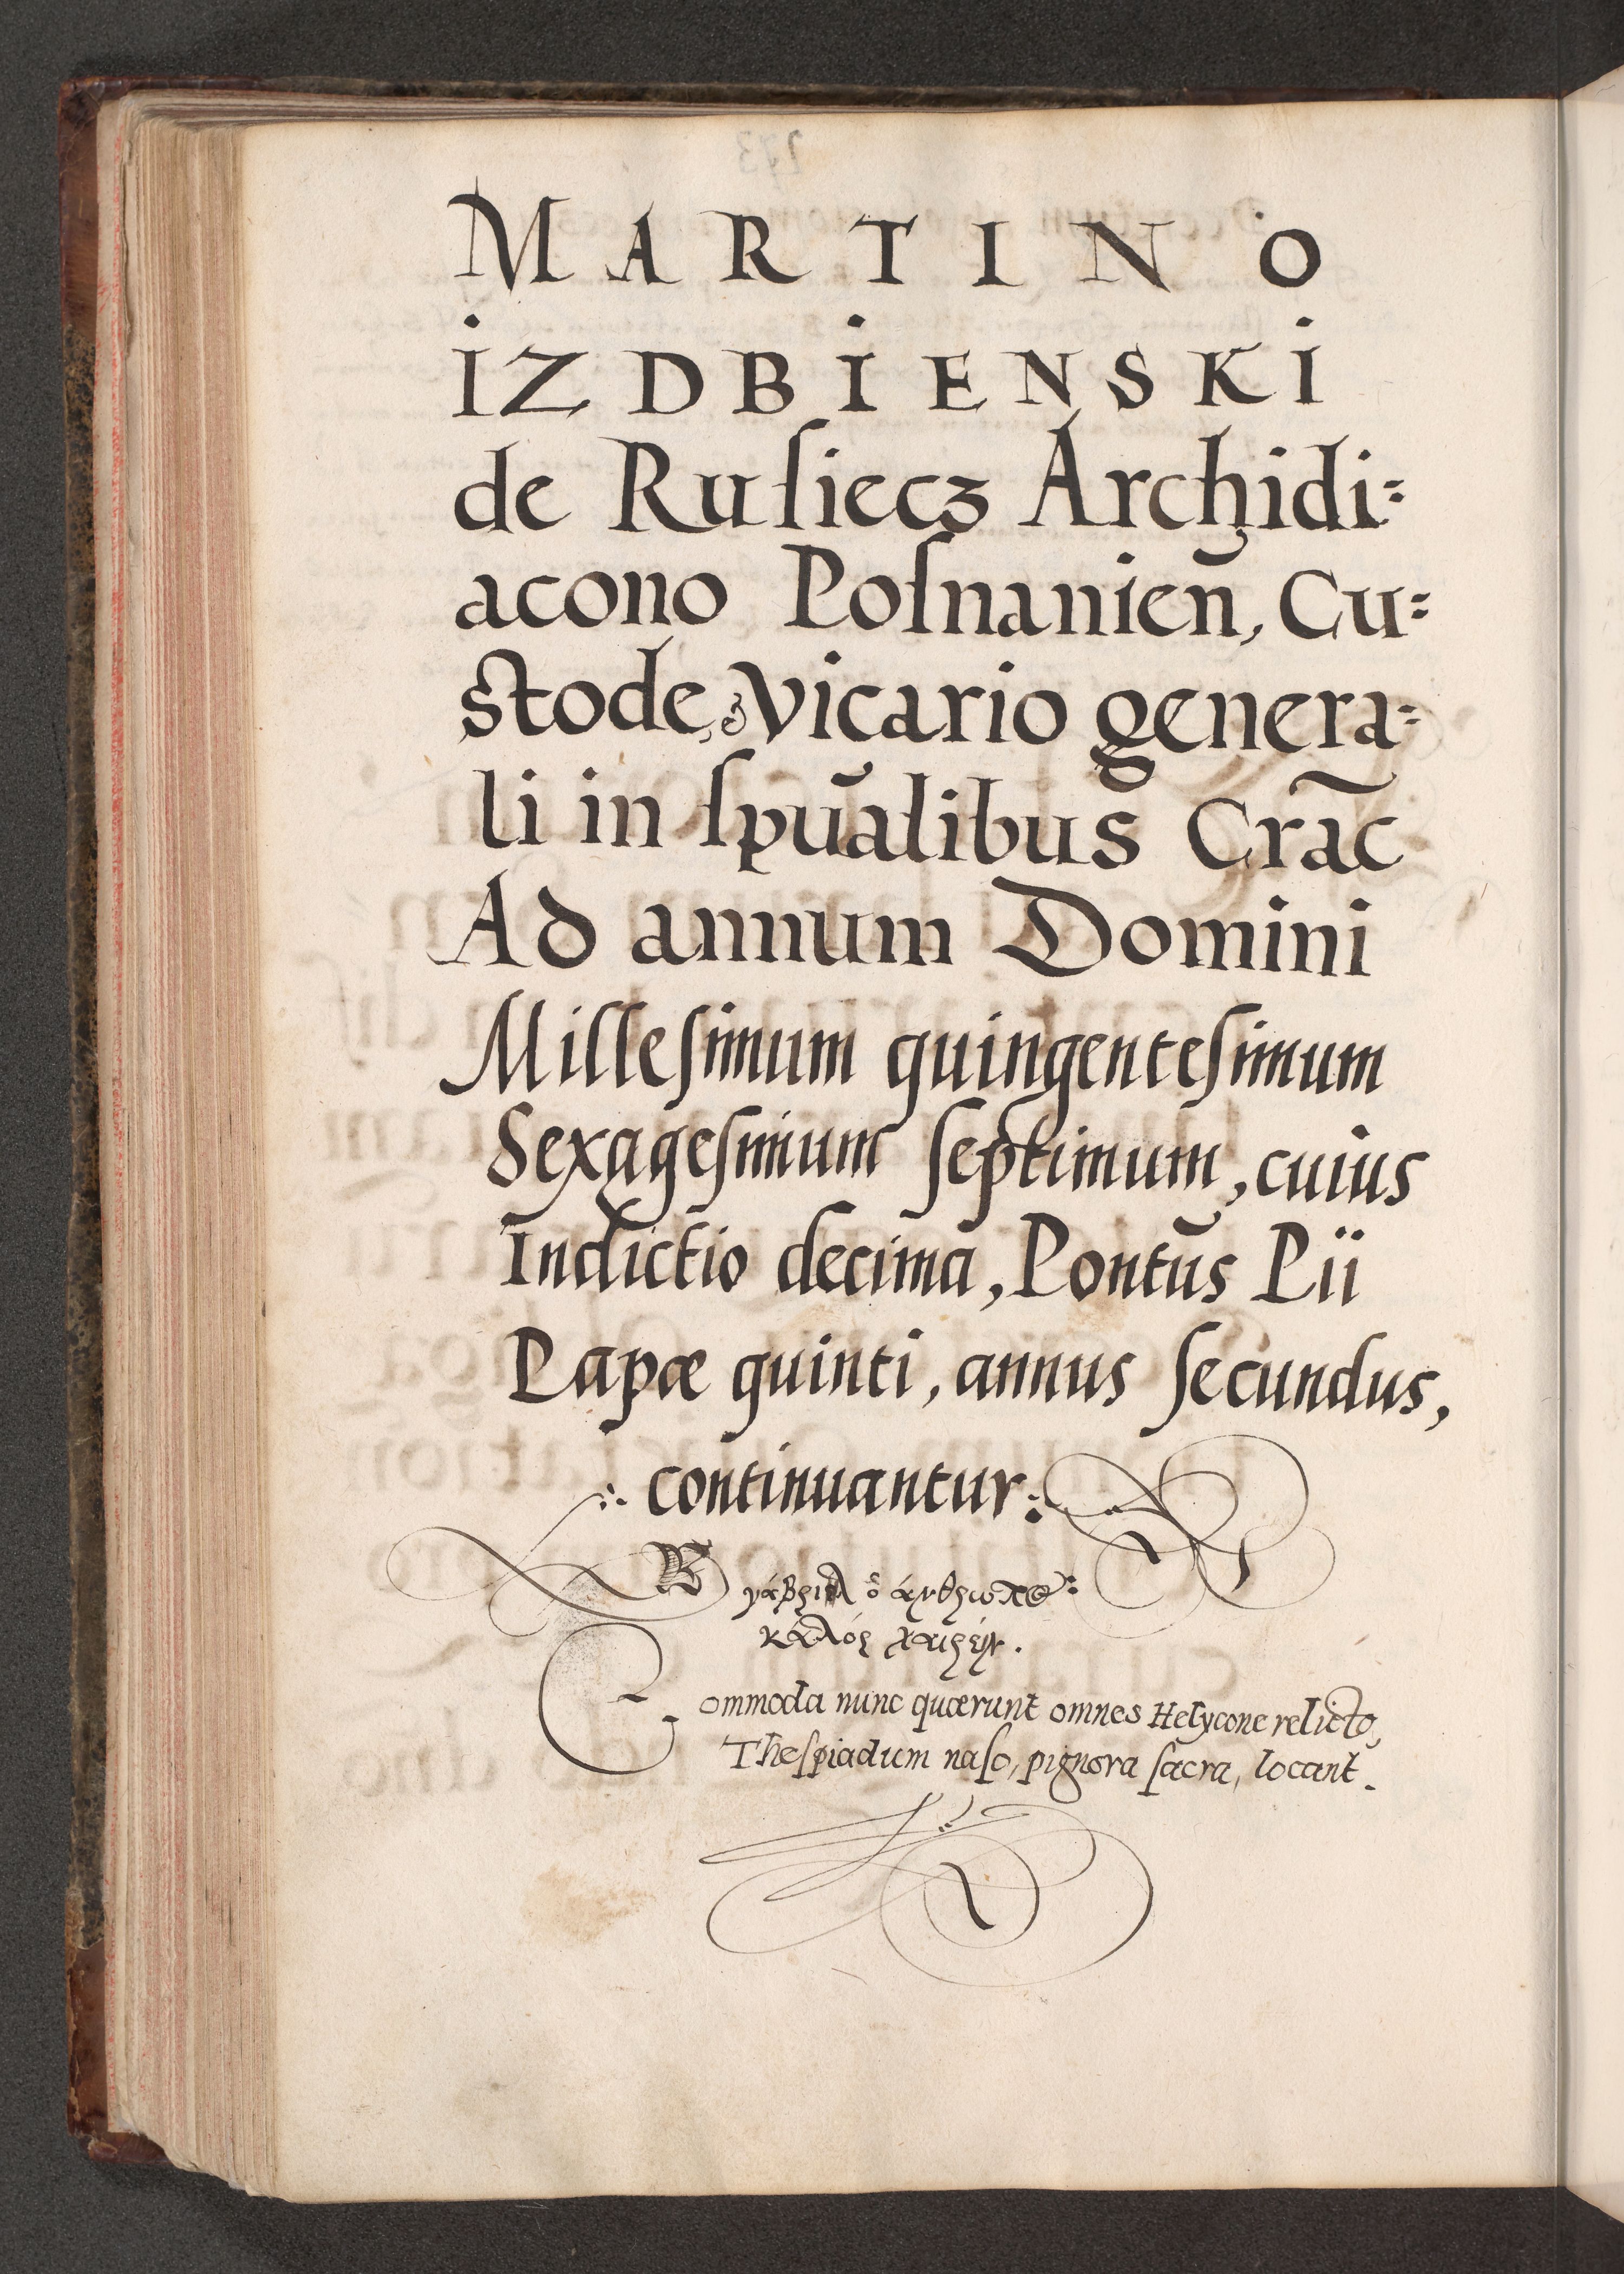 MARTINO
IZDBIENSKI
de Ruſiecz Archidi=
acono Poſnanien̄, Cu=
ſtode, & Vicario genera=
li in ſpūalibus Crac̄
Ad annum Domini
Milleſimum quingenteſimum
Sexageſimum ſeptimum, cuius
Indictio decima, Pontūs Pii
Papæ quinti, annus ſecundus,
continuantur:
γάβριηλ ὁ ἄνθρωπος:
κάλος χαιρέιν.
Commoda nunc quærunt omnes Helycone relicto,
Theſpiadum naſo, pignora ſacra, locant.